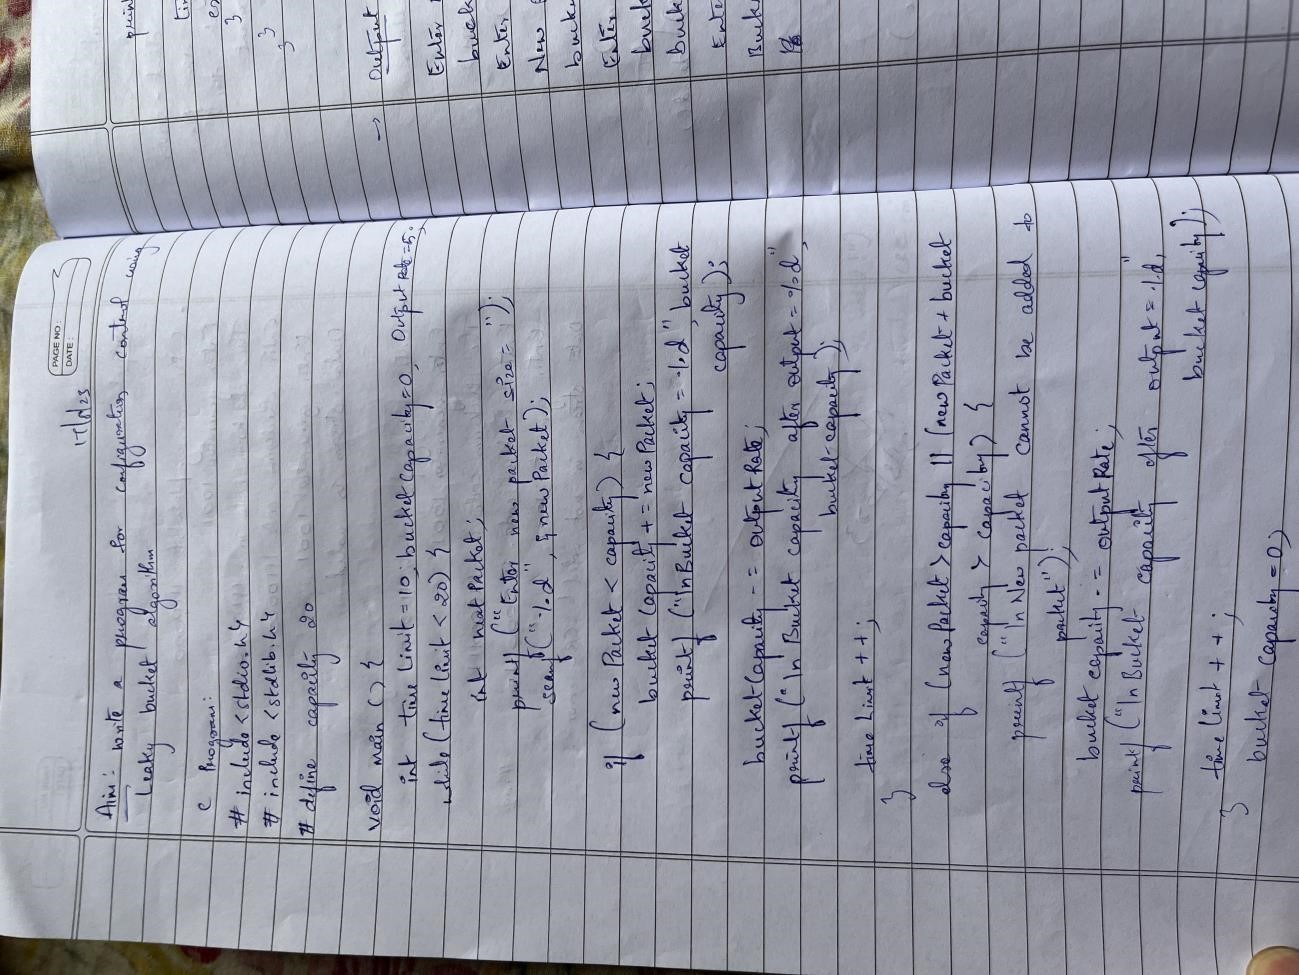 PAGE NO:
DATE:
Aim: write a program for configuration control using
Leaky bucket algorithm
C Program:
# include <stdio.h>
# include <stdlib.h>
# define capacity 20
void main () {
int time Limit = 10; bucket Capacity = 0, Output Rate = 5;
while (time limit < 20) {
int newPacket;
printf (" Enter new packet size = ");
scanf ("%d", & newPacket);
if (new Packet < capacity) {
bucket Capacity + = new Packet;
printf ("\n Bucket capacity = %d", bucket
capacity);
bucket Capacity - = output Rate;
printf ("\n Bucket capacity after output = %d",
bucket-capacity);
time Limit ++;
}
else if (new Packet > capacity || (new Packet + bucket
capacity > Capacity) {
printf ("\n New packet cannot be added to
packet");
bucket capacity - = output Rate;
printf ("\n Bucket capacity after output = %d,"
bucket capacity);
time limit + + ;
}
bucket capacity = 0;
print
}
}
}
→ Output
Enter
buck
Enter
New
bucke
Enter
buck
buck
Ente
Buck